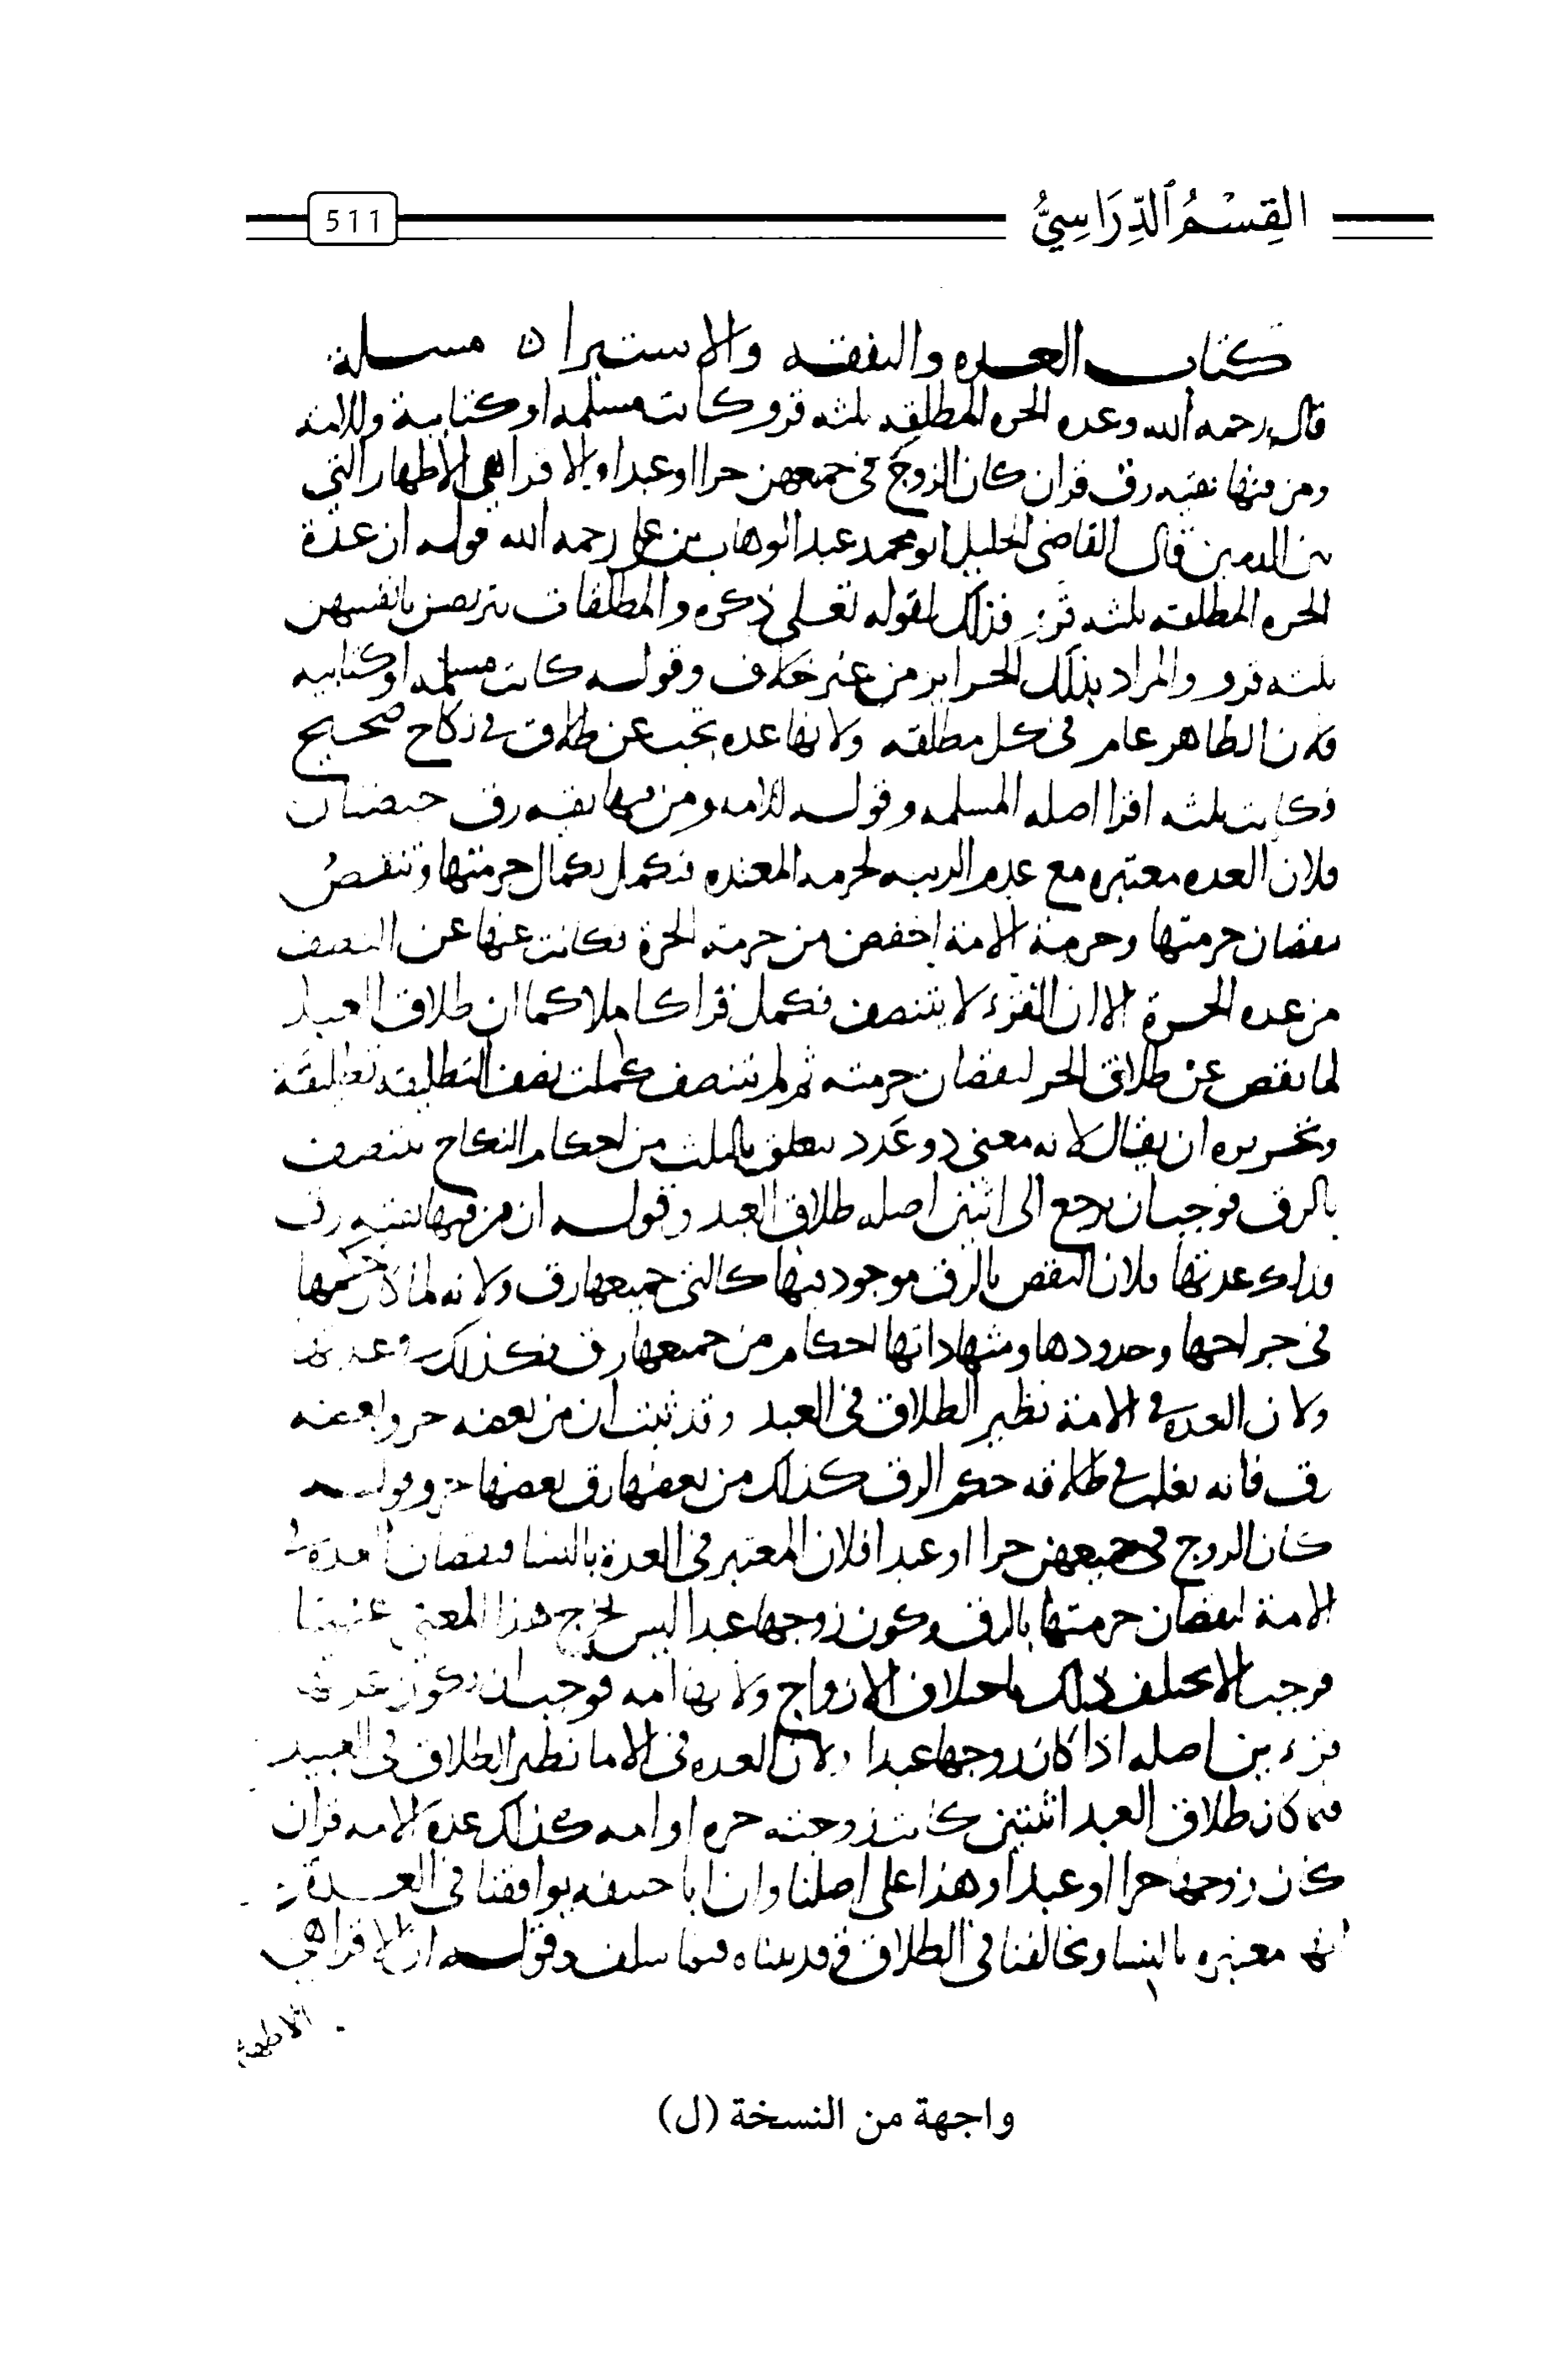 القِسْمُ ٱلدِّرَاسِيُّ
511
كتاب العده والنفقه والاستبرا ن مسله
قال رحمه الله وعده الحره المطلقه ثلثه قرو كانت مسلمه او كتابية وللامه
ومن فيها بقيه رق قران كان الزوج في جميعهن حرا او عبدا والاقرا هي الاطهار التي
بين الدمين قال القاضي الجليل ابو محمد عبد الوهاب بن علي رحمه الله قوله ان عدة
الحره المطلقه ثلثه قرؤ فذلك لقوله تعلى ذكره والمطلقات يتربصن بانفسهن
ثلثه قرو والمراد بذلك الحراير من غير خلاف وقوله كانت مسلمه او كتابيه
فلان الظاهر عام في كل مطلقه ولانها عده تجب عن طلاق في نكاح صحيح
فكانت ثلثه اقرا اصله المسلمه وقوله للامه ومن فيها بقيه رق حيضتان
فلان العده معتبره مع عدم الريبه لحرمه المعتده فتكمل بكمال حرمتها وتنقصُ
بنقصان حرمتها وحرمة الامة اخفض من حرمة الحرة فكانت عنها عن النصف
من عده الحرة الا ان القرؤ لا يتنصف فكمل قرا كاملا كما ان طلاق العبد
لما نقص عن طلاق الحر لنقصان حرمته ثم لم يتنصف كملت نصف التطليقه تطليقة
وتحريره ان يقال لانه معنى ذو عدد يتعلق بالثلث من احكام النكاح يتنصف
بالرق فوجب ان يرجع الى اثنين اصله طلاق العبد وقوله ان من فيها بقيه رق
فذلك عدتها فلان النقص بالرق موجود فيها كالتي جميعها رق ولانه لما كان حكمها
في جراحها وحدودها وشهاداتها احكام من جميعها رق فكذلك في عدتها
ولان العده في الامة نظير الطلاق في العبد وقد ثبت ان من بعضه حر وبعضه
رق فانه يغلب في طلاقه حكم الرق كذلك من بعضها رق بعضها حر وقوله
كان الزوج في جميعهن حرا او عبدا فلان المعتبر في العدة بالنسا فنقصان العدة في
الامة لنقصان حرمتها بالرق وكون زوجها عبدا ليس يخرج هذا المعنى عنها
فوجب الا يختلف ذلك باختلاف الازواج ولانها امه فوجب ان تكون عدتها
قرءين اصله اذا كان زوجها عبدا ولان العده في الاما نظير الطلاق في العبيد
فلما كان طلاق العبد اثنتين كانت زوجته حره او امه كذلك عدة الامه قران
كان زوجها حرا او عبدا وهذا على اصلنا وان ابا حنيفه يوافقنا في العدة
انها معتبره بالنسا ويخالفنا في الطلاق وقد بيناه فيما سلف وقوله ان الاقرا هي
الاطهار
واجهة من النسخة (ل)